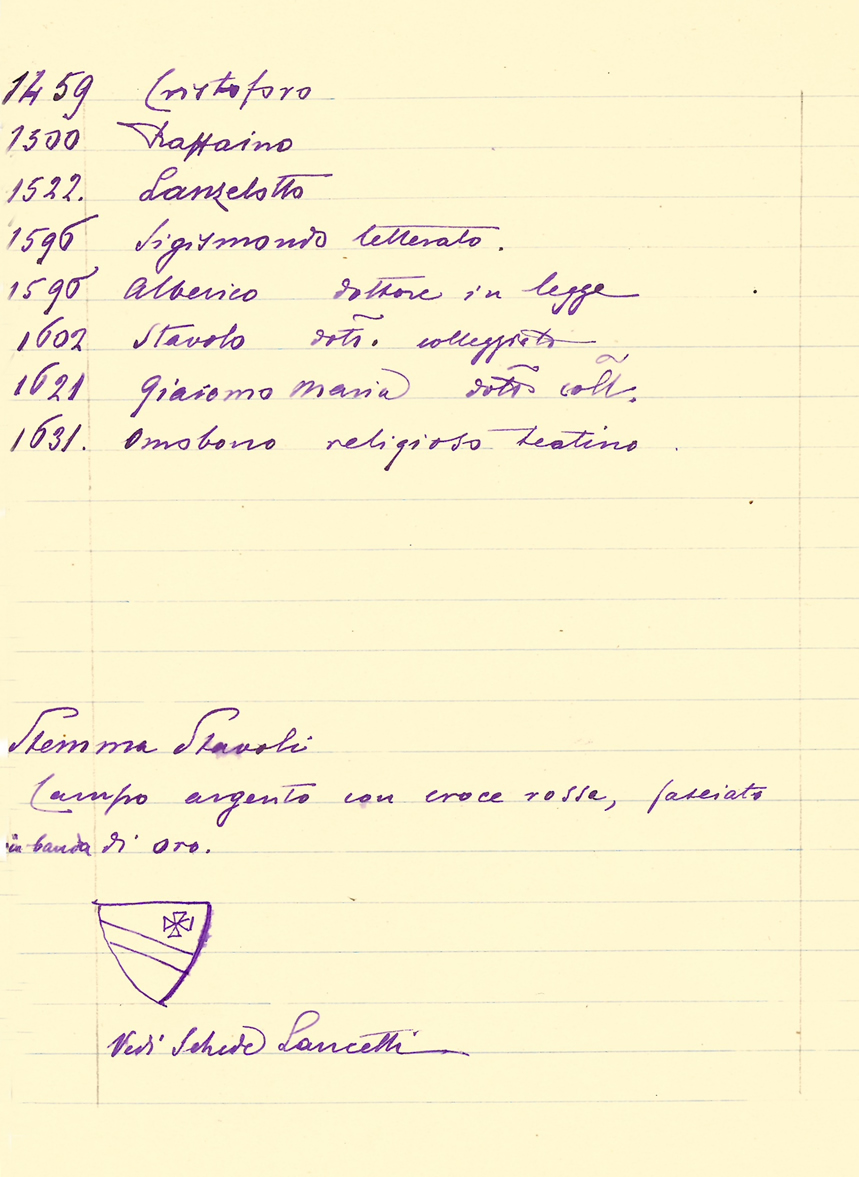 1459 Cristoforo
1500 Raffaino
1522. Lanzelotto
1596 Sigismondo letterato.
1596 Alberico dottore in legge
1602 Stavolo dott. colleggiato
1621 Giacomo Maria dott. coll.
1631. Omobono religioso teatino.
Stemma Stavoli
Campo argento con croce rossa, fasciato
in banda di oro.
Vedi Schede Lancetti